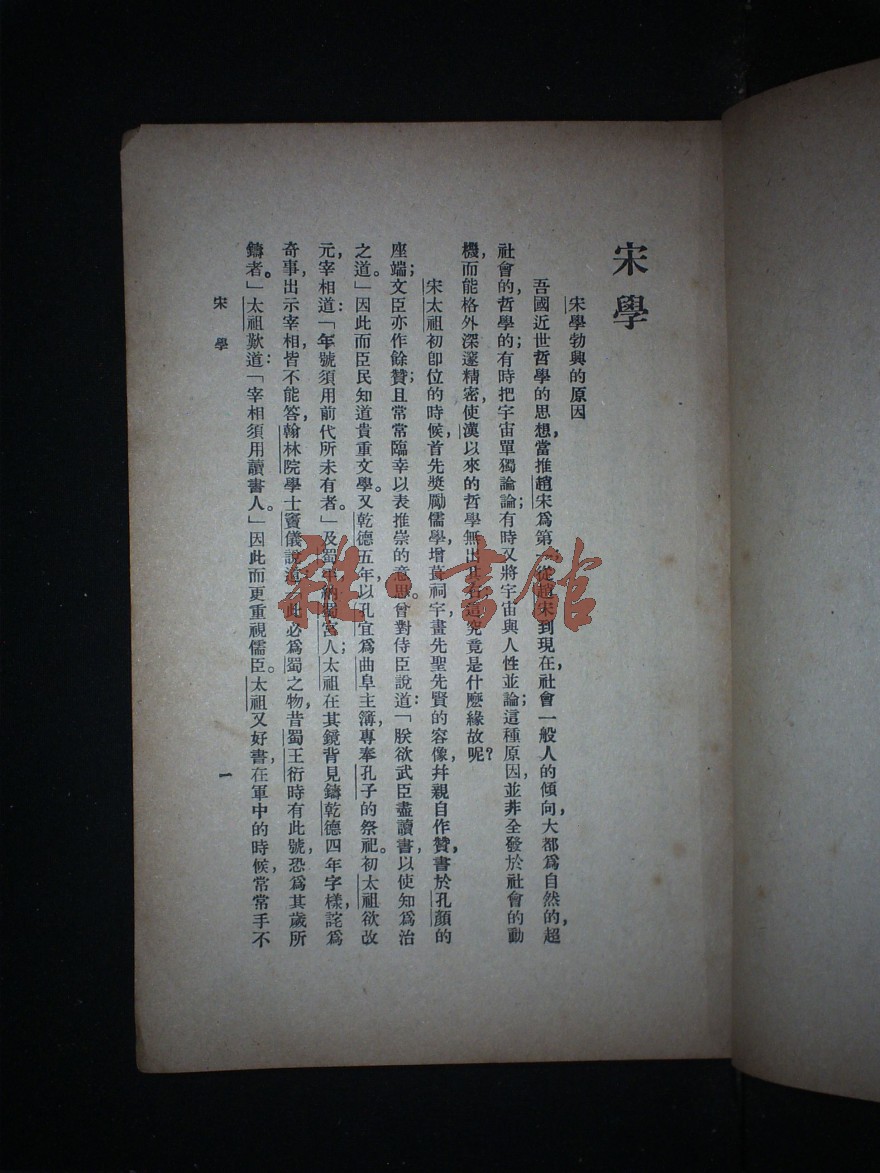 宋學
宋學勃興的原因
吾國近世哲學的思想,當推趙宋爲第一。從趙宋到現在,社會一般人的傾向,大都爲自然的,超
社會的,哲學的;有時把宇宙單獨論論;有時又將宇宙與人性並論;這種原因,並非全發於社會的動
機,而能格外深邃精密,使漢以來的哲學無出其右,這究竟是什麼緣故呢?
宋太祖初卽位的時候,首先獎勵儒學,增葺祠宇,畫先聖先賢的容像,幷親自作贊,書於孔顏的
座端;文臣亦作餘贊;且常常臨幸以表推崇的意思。曾對侍臣說道:「朕欲武臣盡讀書,以使知爲治
之道。」因此而臣民知道貴重文學。又乾德五年,以孔宜爲曲阜主簿,專奉孔子的祭祀。初太祖欲改
元,宰相道:「年號須用前代所未有者。」及蜀平,納蜀宮人;太祖在其鏡背見鑄乾德四年字樣,詫爲
奇事,出示宰相,皆不能答,翰林院學士竇儀說道:「此必爲蜀之物,昔蜀王衍時有此號,恐爲其歲所
鑄者。」太祖歎道:「宰相須用讀書人。」因此而更重視儒臣。太祖又好書,在軍中的時候,常常手不
宋學
一
雜·書館